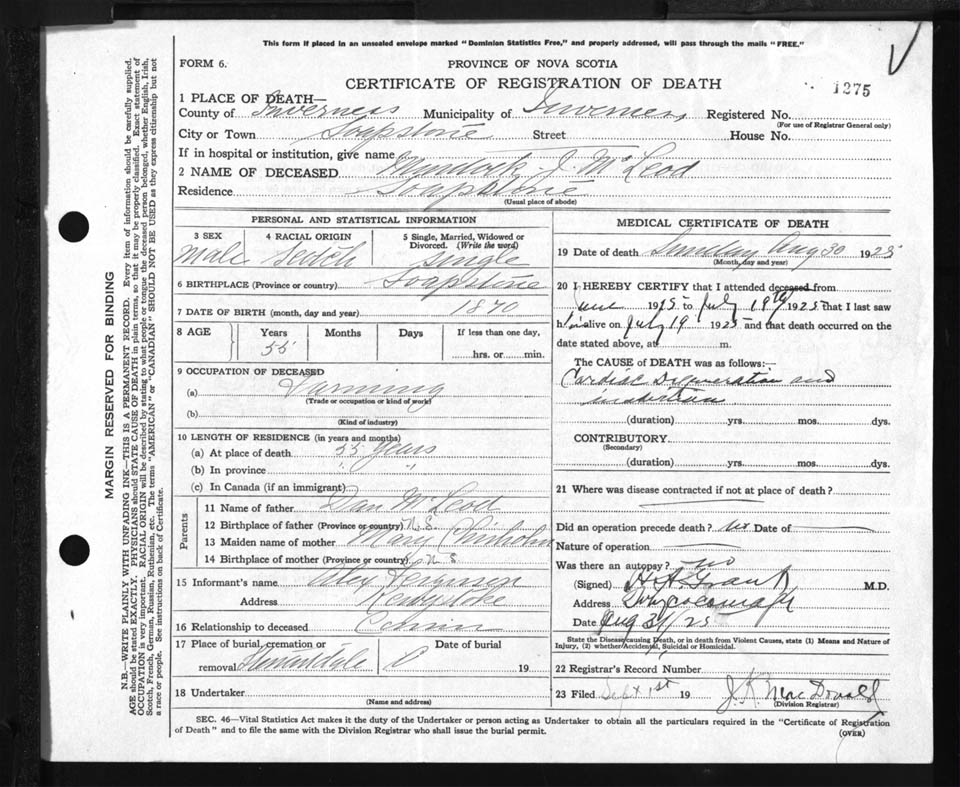 This form if placed in an unsealed envelope marked "Dominion Statistics Free," and properly addressed, will pass through the mails "FREE."
FORM 6.
PROVINCE OF NOVA SCOTIA
CERTIFICATE OF REGISTRATION OF DEATH
1275
1 PLACE OF DEATH—
County of Inverness Municipality of Inverness Registered No.
(For use of Registrar General only)
City or Town Soapstone Street House No.
If in hospital or institution, give name
2 NAME OF DECEASED Murdock J McLeod
Residence Soapstone
(Usual place of abode)
PERSONAL AND STATISTICAL INFORMATION
3 SEX 4 RACIAL ORIGIN 5 Single, Married, Widowed or Divorced. (Write the word)
Male Scotch Single
6 BIRTHPLACE (Province or country) Soapstone
7 DATE OF BIRTH (month, day and year) 1870
8 AGE Years Months Days If less than one day,
55 hrs. or min.
9 OCCUPATION OF DECEASED
(a) Farming
(Trade or occupation or kind of work)
(b)
(Kind of industry)
10 LENGTH OF RESIDENCE (in years and months)
(a) At place of death 55 years
(b) In province " "
(c) In Canada (if an immigrant)
Parents
11 Name of father Dan McLeod
12 Birthplace of father (Province or country) N.S.
13 Maiden name of mother Mary Chisholm
14 Birthplace of mother (Province or country) N.S.
15 Informant's name Alex Ferguson
Address
16 Relationship to deceased
17 Place of burial, cremation or removal Stewartdale Date of burial
19
18 Undertaker
(Name and address)
MEDICAL CERTIFICATE OF DEATH
19 Date of death Sunday Aug 30 1925
(Month, day and year)
20 I HEREBY CERTIFY that I attended deceased from
June 1925 to July 19th 1925 that I last saw
him alive on July 19 1925 and that death occurred on
date stated above, at m.
The CAUSE of DEATH was as follows:—
Cardiac degeneration and
(duration) yrs. mos. dys.
CONTRIBUTORY
(Secondary)
(duration) yrs. mos. dys.
21 Where was disease contracted if not at place of death?
Did an operation precede death? no Date of
Nature of operation
Was there an autopsy? no
(Signed) H A Grant M.D.
Address Whycocomagh
Date Aug 31/25
State the Disease causing Death, or in death from Violent Causes, state (1) Means and Nature of
Injury, (2) whether Accidental, Suicidal or Homicidal.
22 Registrar's Record Number
23 Filed Sept 1st 19 J. K. MacDonald
(Division Registrar)
SEC. 46—Vital Statistics Act makes it the duty of the Undertaker or person acting as Undertaker to obtain all the particulars required in the "Certificate of Registration
of Death" and to file the same with the Division Registrar who shall issue the burial permit.
(OVER)
MARGIN RESERVED FOR BINDING
N.B.—WRITE PLAINLY WITH UNFADING INK—THIS IS A PERMANENT RECORD. Every item of information should be carefully supplied.
AGE should be stated EXACTLY. PHYSICIANS should STATE CAUSE OF DEATH in plain terms, so that it may be properly classified. Exact statement of
OCCUPATION is very important. RACIAL ORIGIN will be described by stating to what people or tongue the deceased person belonged, whether English, Irish,
Scotch, French, German, Russian, Ruthenian, etc. The terms "AMERICAN" or "CANADIAN" SHOULD NOT BE USED as they express citizenship but not
a race or people. See instructions on back of Certificate.